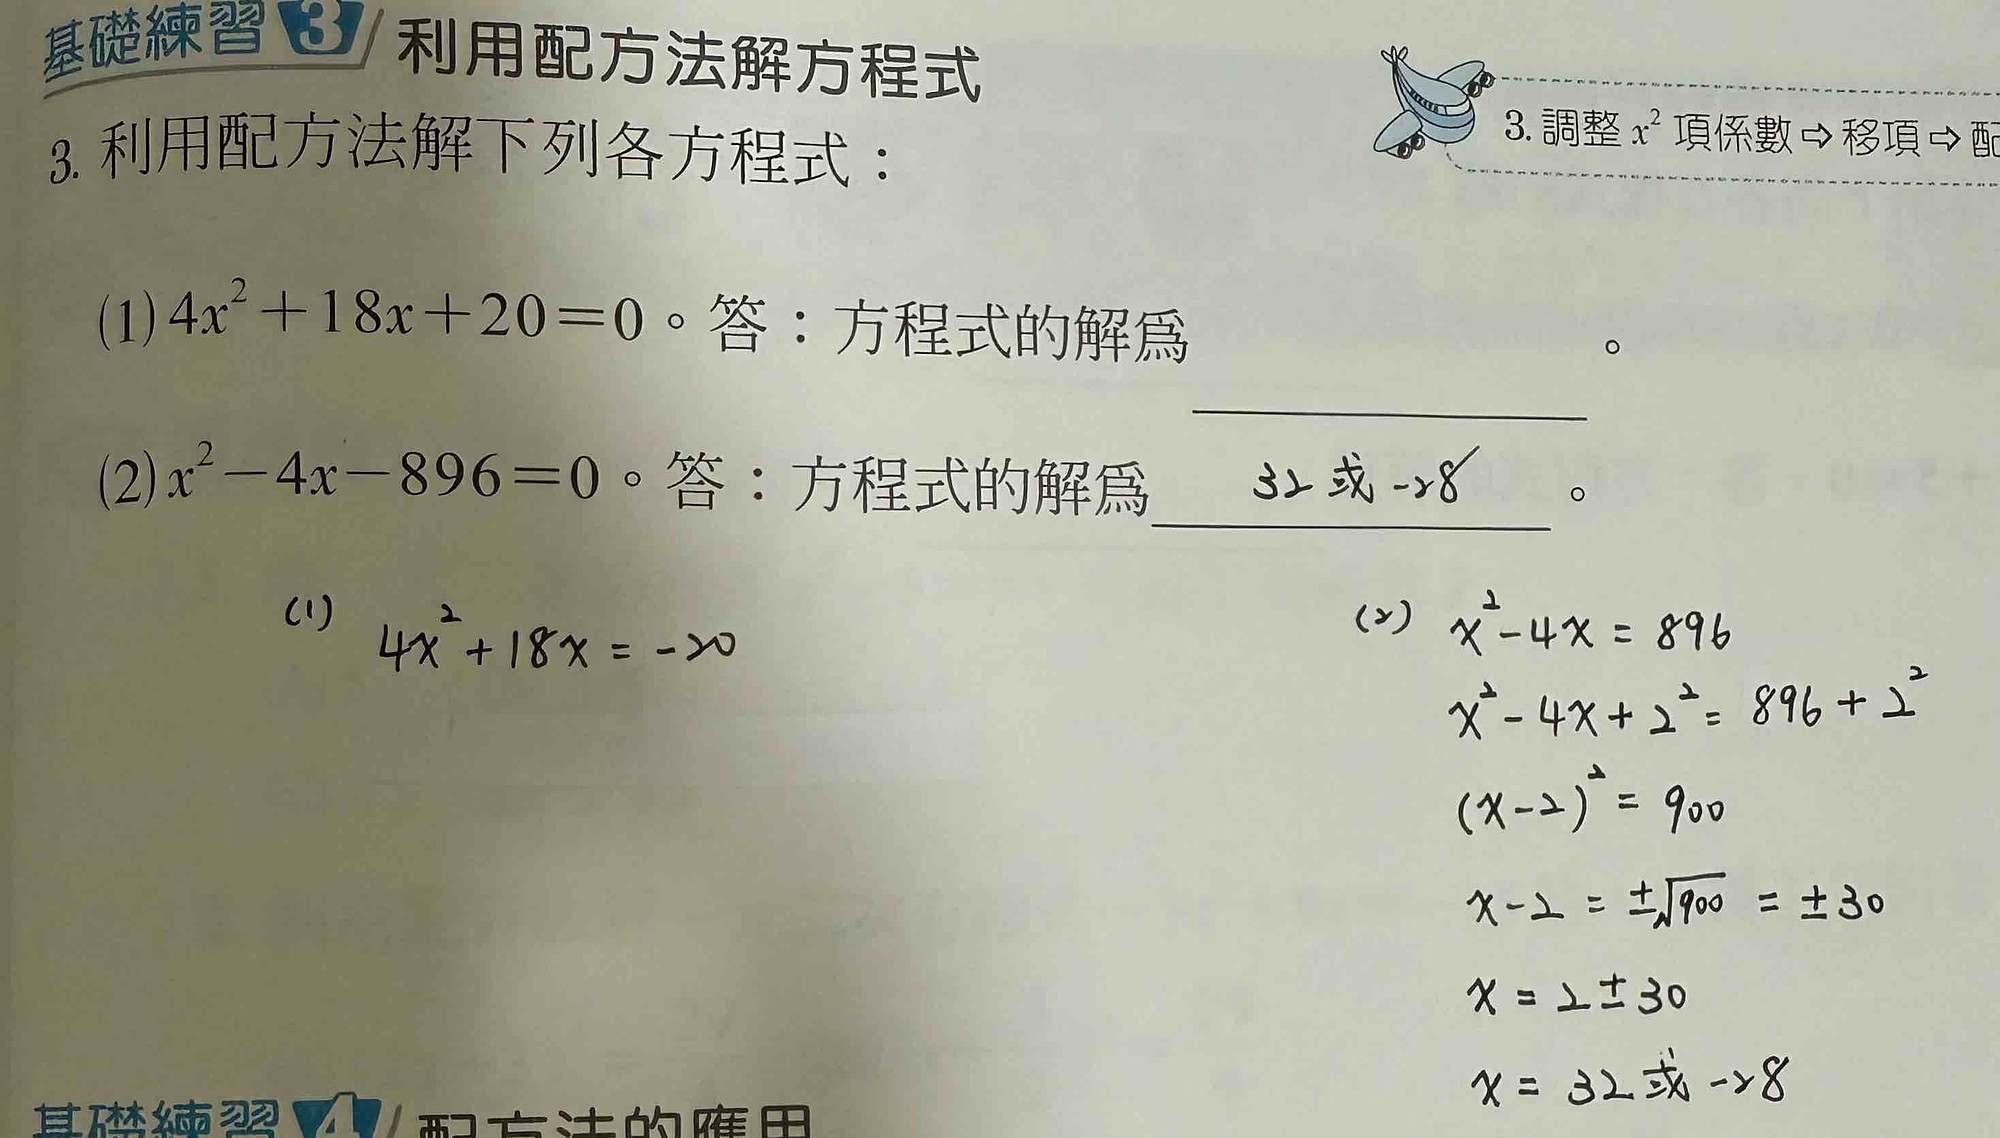 基礎練習 3 利用配方法解方程式
3. 調整 x² 項係數⇨移項⇨配
3. 利用配方法解下列各方程式：
(1) 4x²＋18x＋20＝0。答：方程式的解爲 。
(2) x²－4x－896＝0。答：方程式的解爲 32 或 -28 。
(1) 4x² + 18x = -20
(2) x² - 4x = 896
x² - 4x + 2² = 896 + 2²
(x-2)² = 900
x-2 = ±√900 = ±30
x = 2 ± 30
x = 32 或 -28
基礎練習 4 配方法的應用